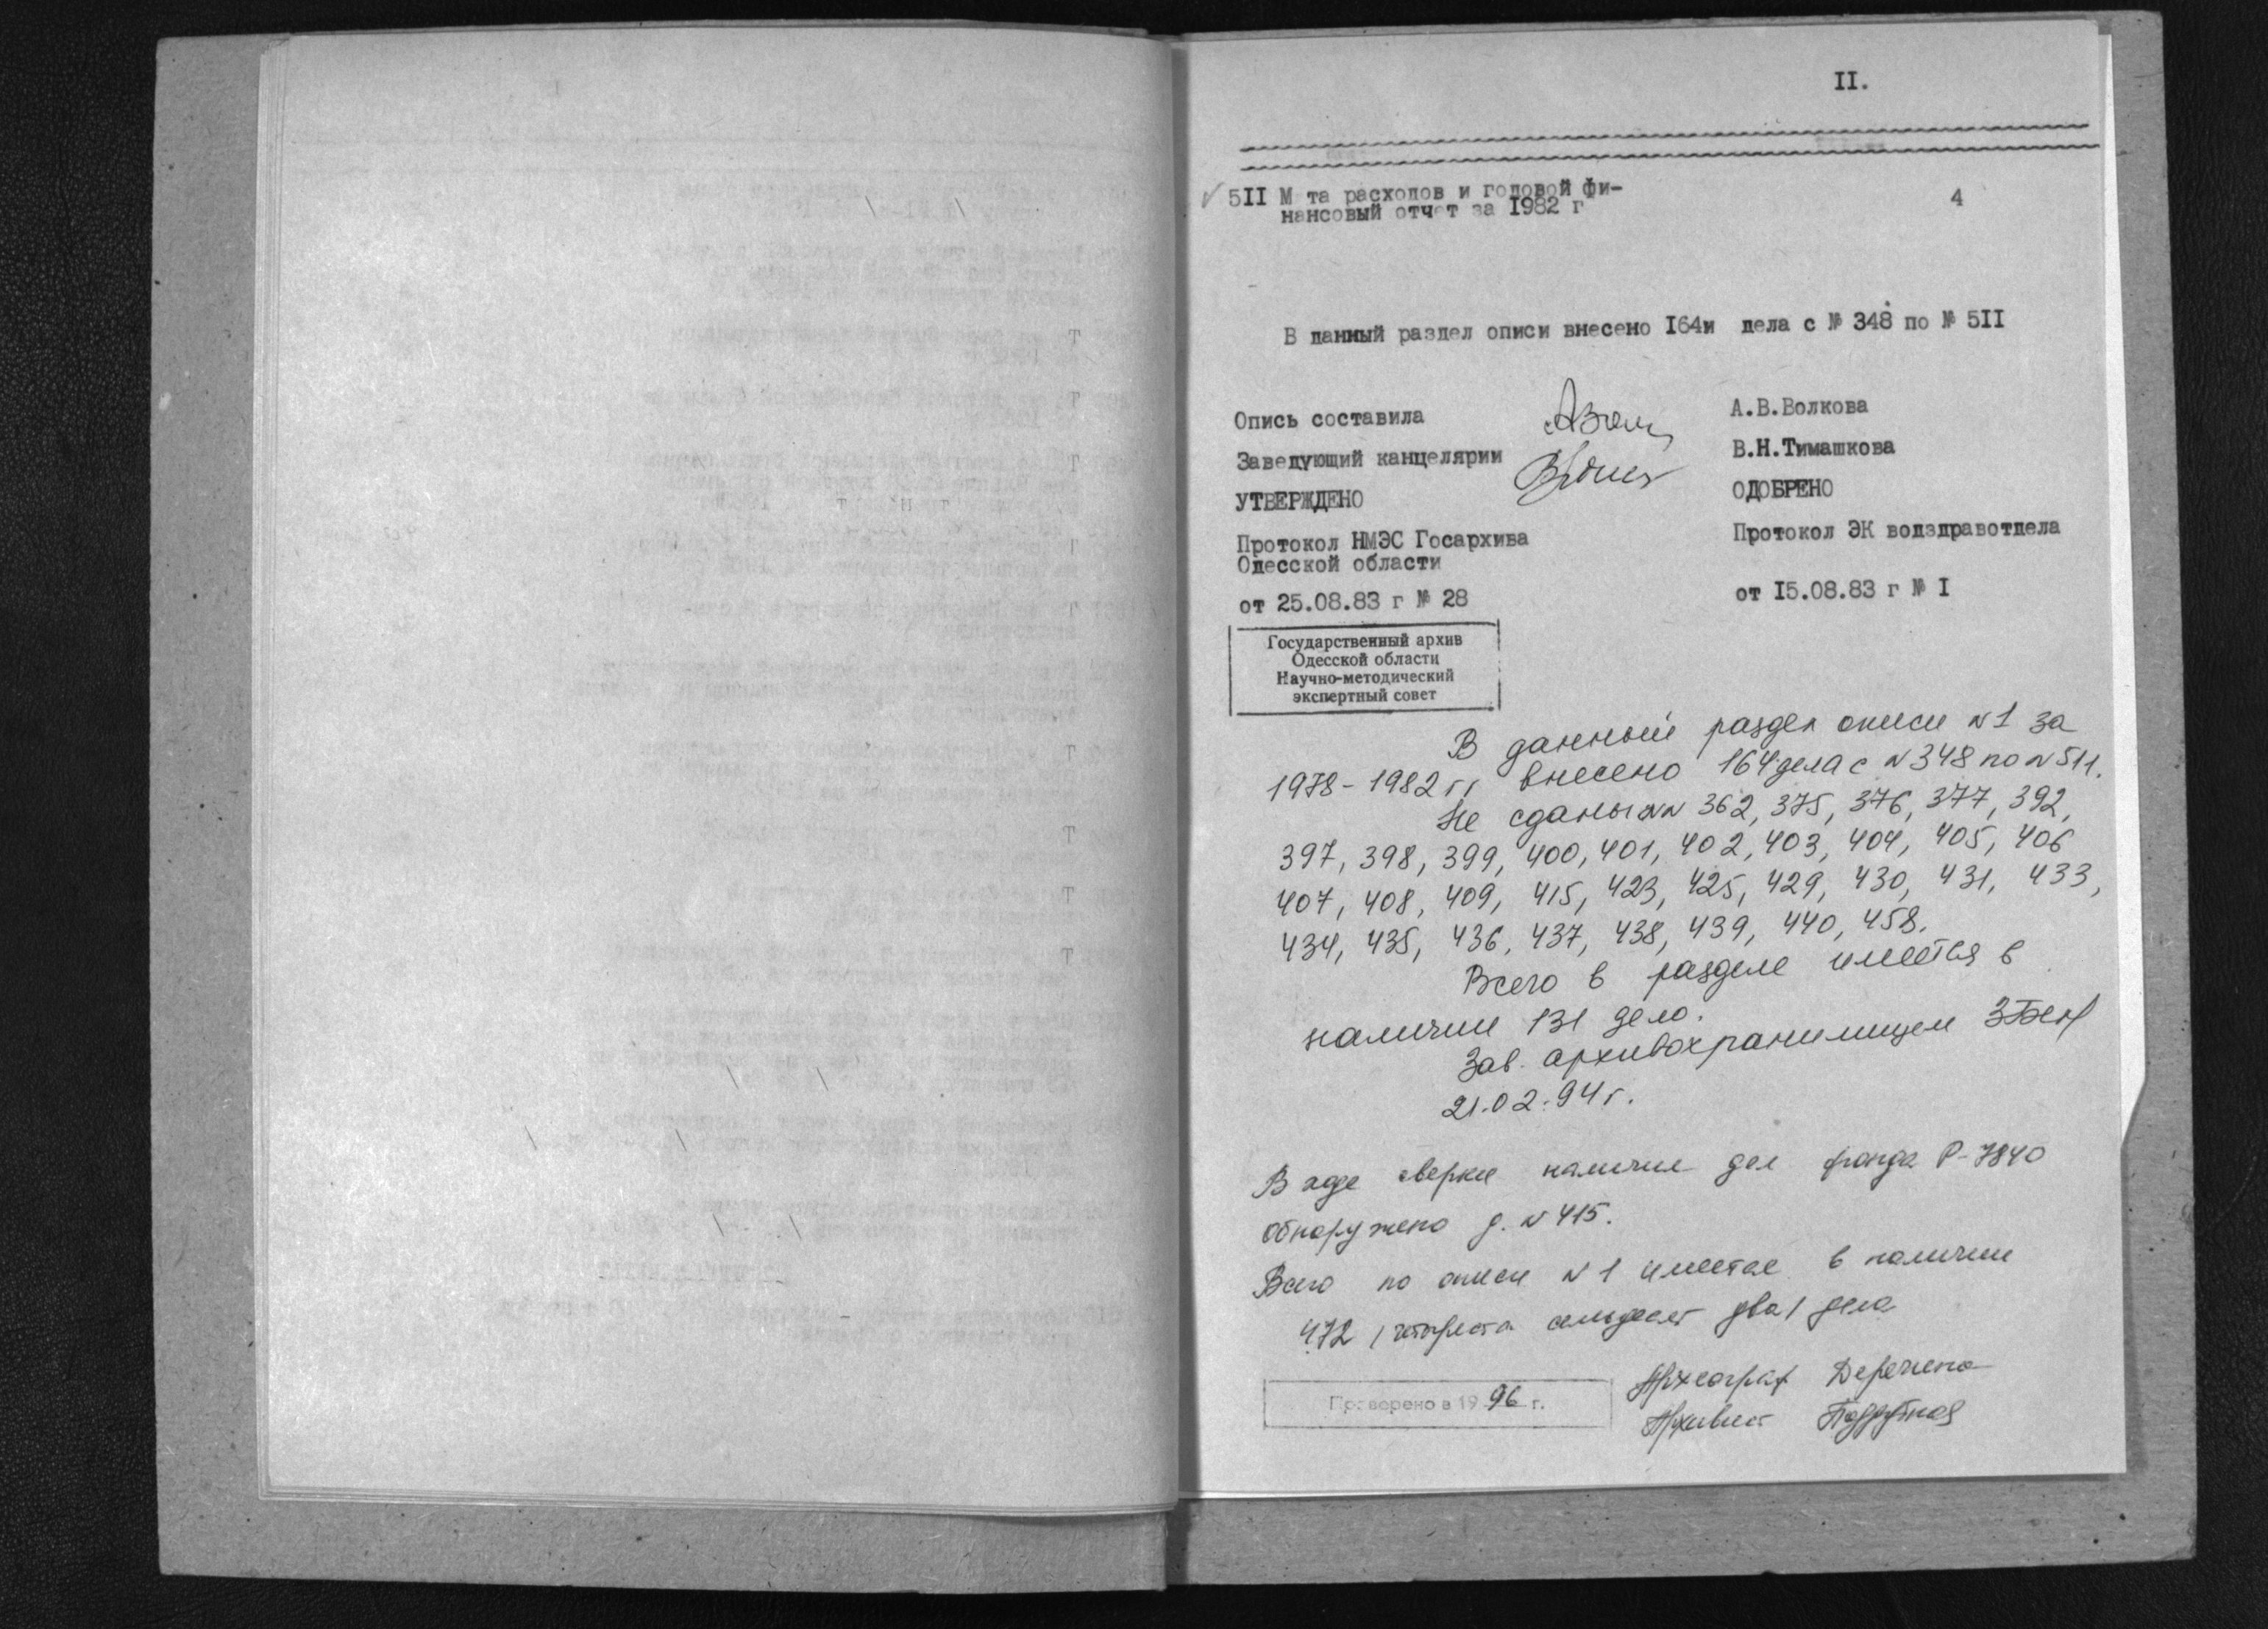 II.
5II М та расходов и годовой фи-
нансовый отчет за I982 г
4
В данный раздел описи внесено I64и дела с № 348 по № 5II
Опись составила
А.В.Волкова
Заведующий канцелярии
В.Н.Тимашкова
УТВЕРЖДЕНО
ОДОБРЕНО
Протокол НМЭС Госархива
Одесской области
Протокол ЭК водздравотдела
от 25.08.83 г № 28
от I5.08.83 г № I
Государственный архив
Одесской области
Научно-методический
экспертный совет
В данный раздел описи №1 за
1978-1982 гг внесено 164 дела с №348 по №511.
Не сданы №№ 362, 375, 376, 377, 392,
397, 398, 399, 400, 401, 402, 403, 404, 405, 406
407, 408, 409, 415, 423, 425, 429, 430, 431, 433,
434, 435, 436, 437, 438, 439, 440, 458.
Всего в разделе имеется в
наличии 131 дело.
Зав. архивохранилищем
21.02.94г.
В ходе сверки наличия дел фонда Р-7840
обнаружено д. №415.
Всего по описи №1 имеется в наличии
472 /четыреста семьдесят два/ дела
Археограф
Архивист
Проверено в 1996 г.